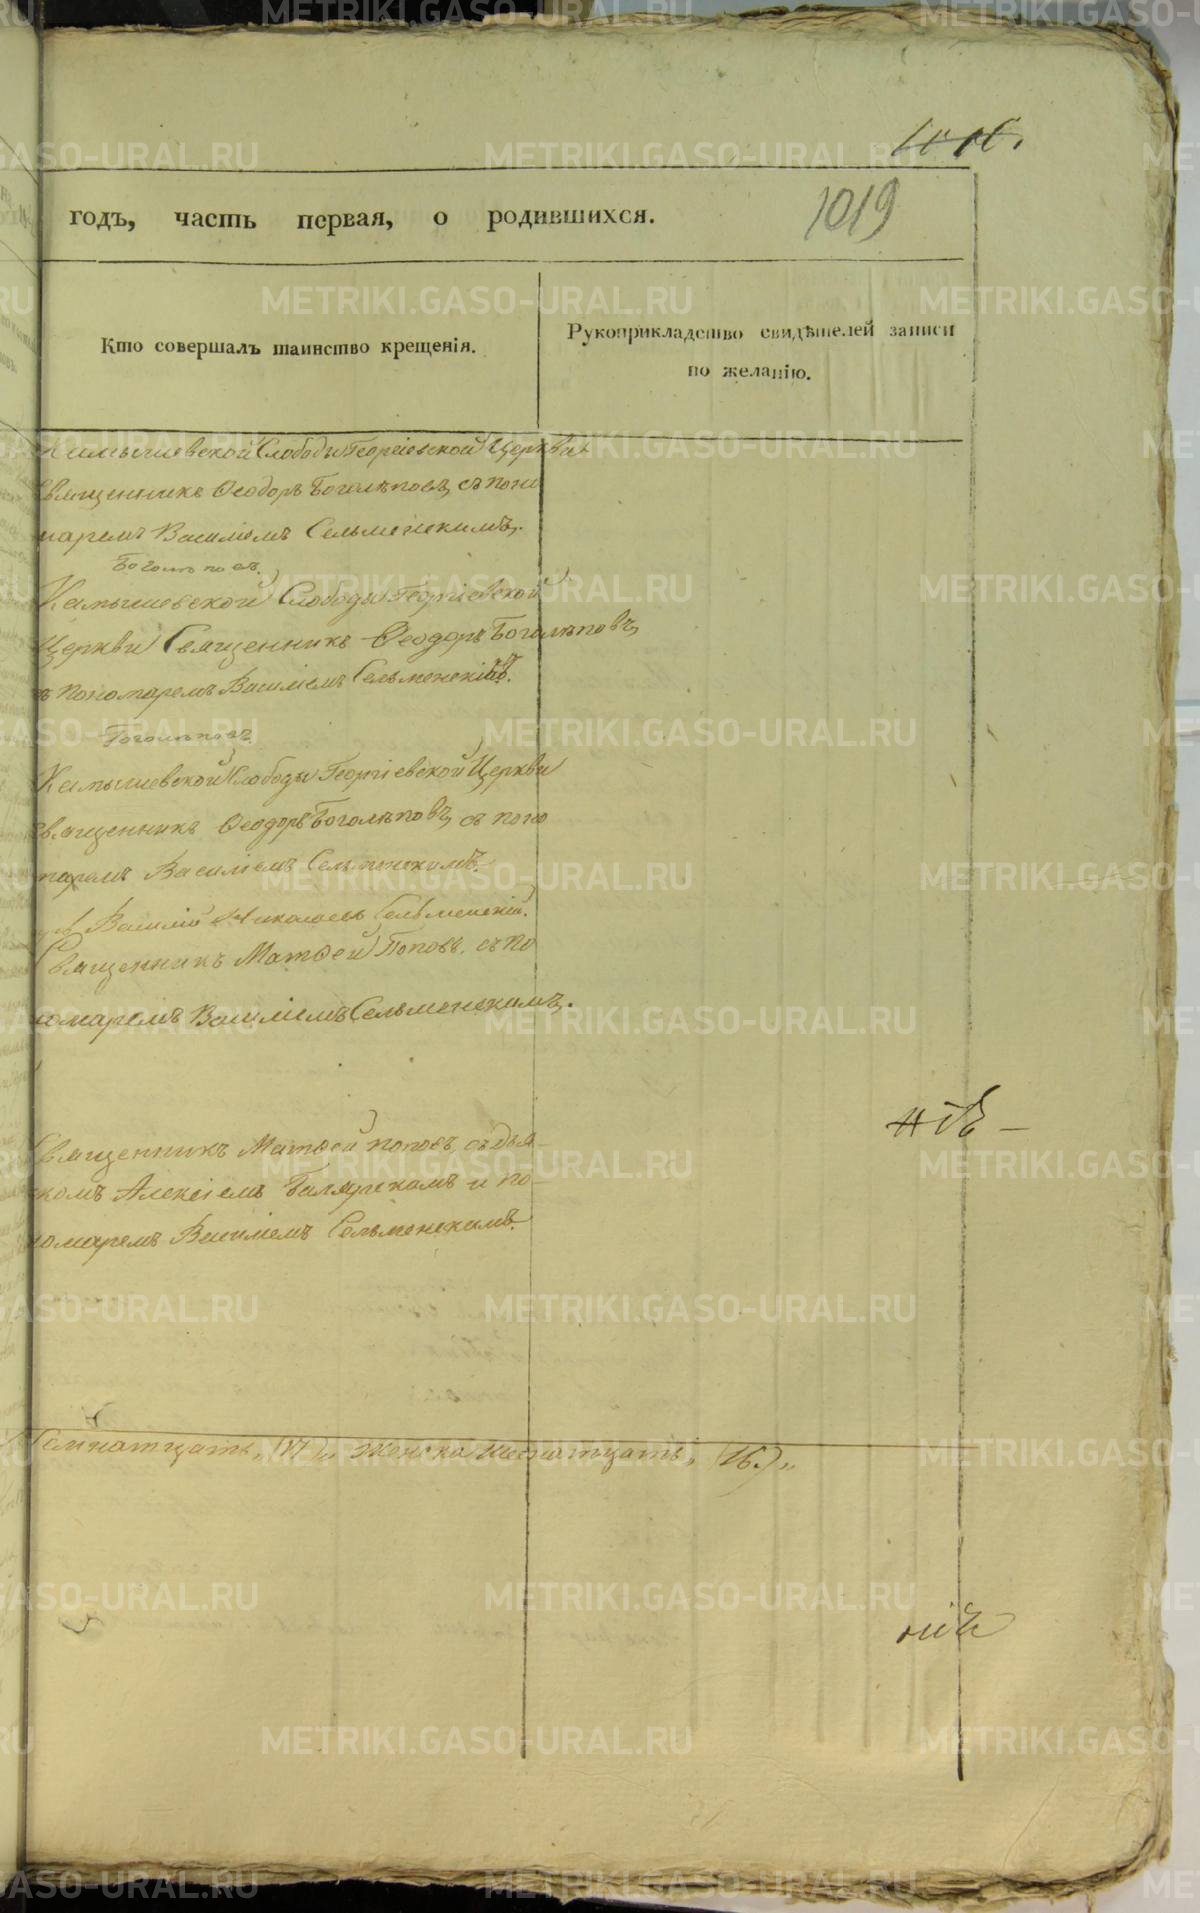 1019
годъ, часть первая, о родившихся.
Кто совершалъ таинство крещенія.
Рукоприкладство свидѣтелей записи
по желанію.
Камышевской Слободы Георгіевской Церкви
Священникъ Ѳеодоръ Боголѣповъ, съ поно
маремъ Василіемъ Сельменскимъ.
Боголѣповъ.
Камышевской Слободы Георгіевской
Церкви Священникъ Ѳеодоръ Боголѣповъ,
съ пономаремъ Василіемъ Сельменскимъ.
Боголѣповъ.
Камышевской Слободы Георгіевской Церкви
Священникъ Ѳеодоръ Боголѣповъ, съ поно
маремъ Василіемъ Сельменскимъ.
Василій Николаевъ Сельменскій.
Священникъ Матѳей Поповъ, съ по
номаремъ Василіемъ Сельменскимъ.
Священникъ Матѳей Поповъ, съ дья
комъ Алексіемъ и по
номаремъ Василіемъ Сельменскимъ.
(17) „ женска шестнатцать „ (16.) „
METRIKI.GASO-URAL.RU